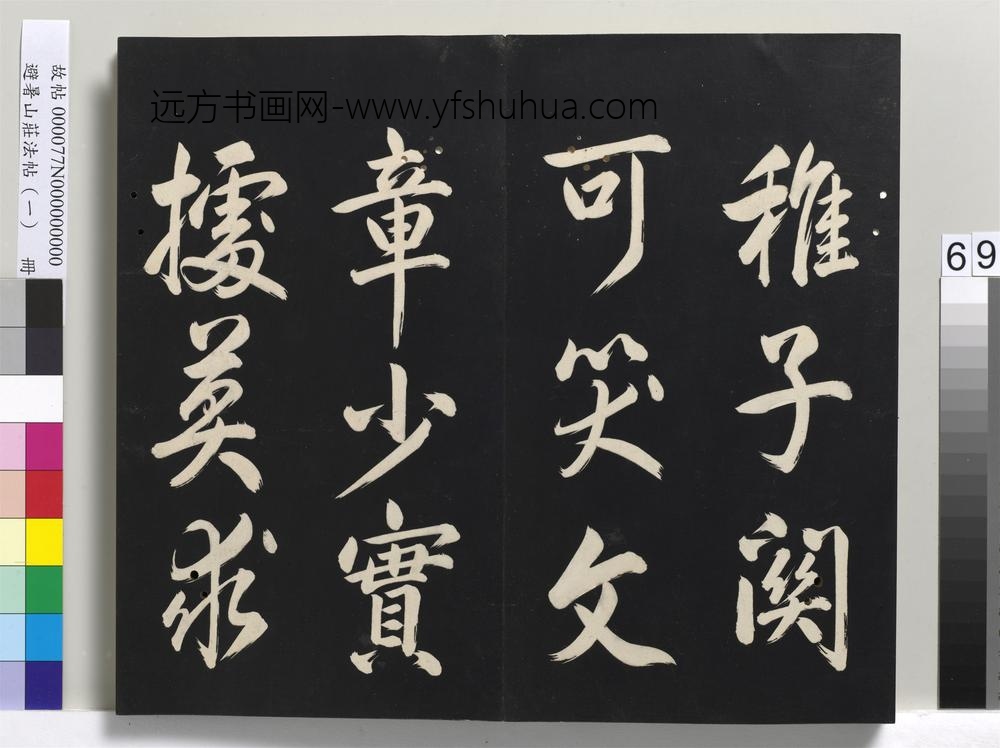 稚子闋
可笑文
章少實
據莫求
远方书画网-www.yfshuhua.com
故帖 000077N000000000
避暑山莊法帖（一） 冊
69